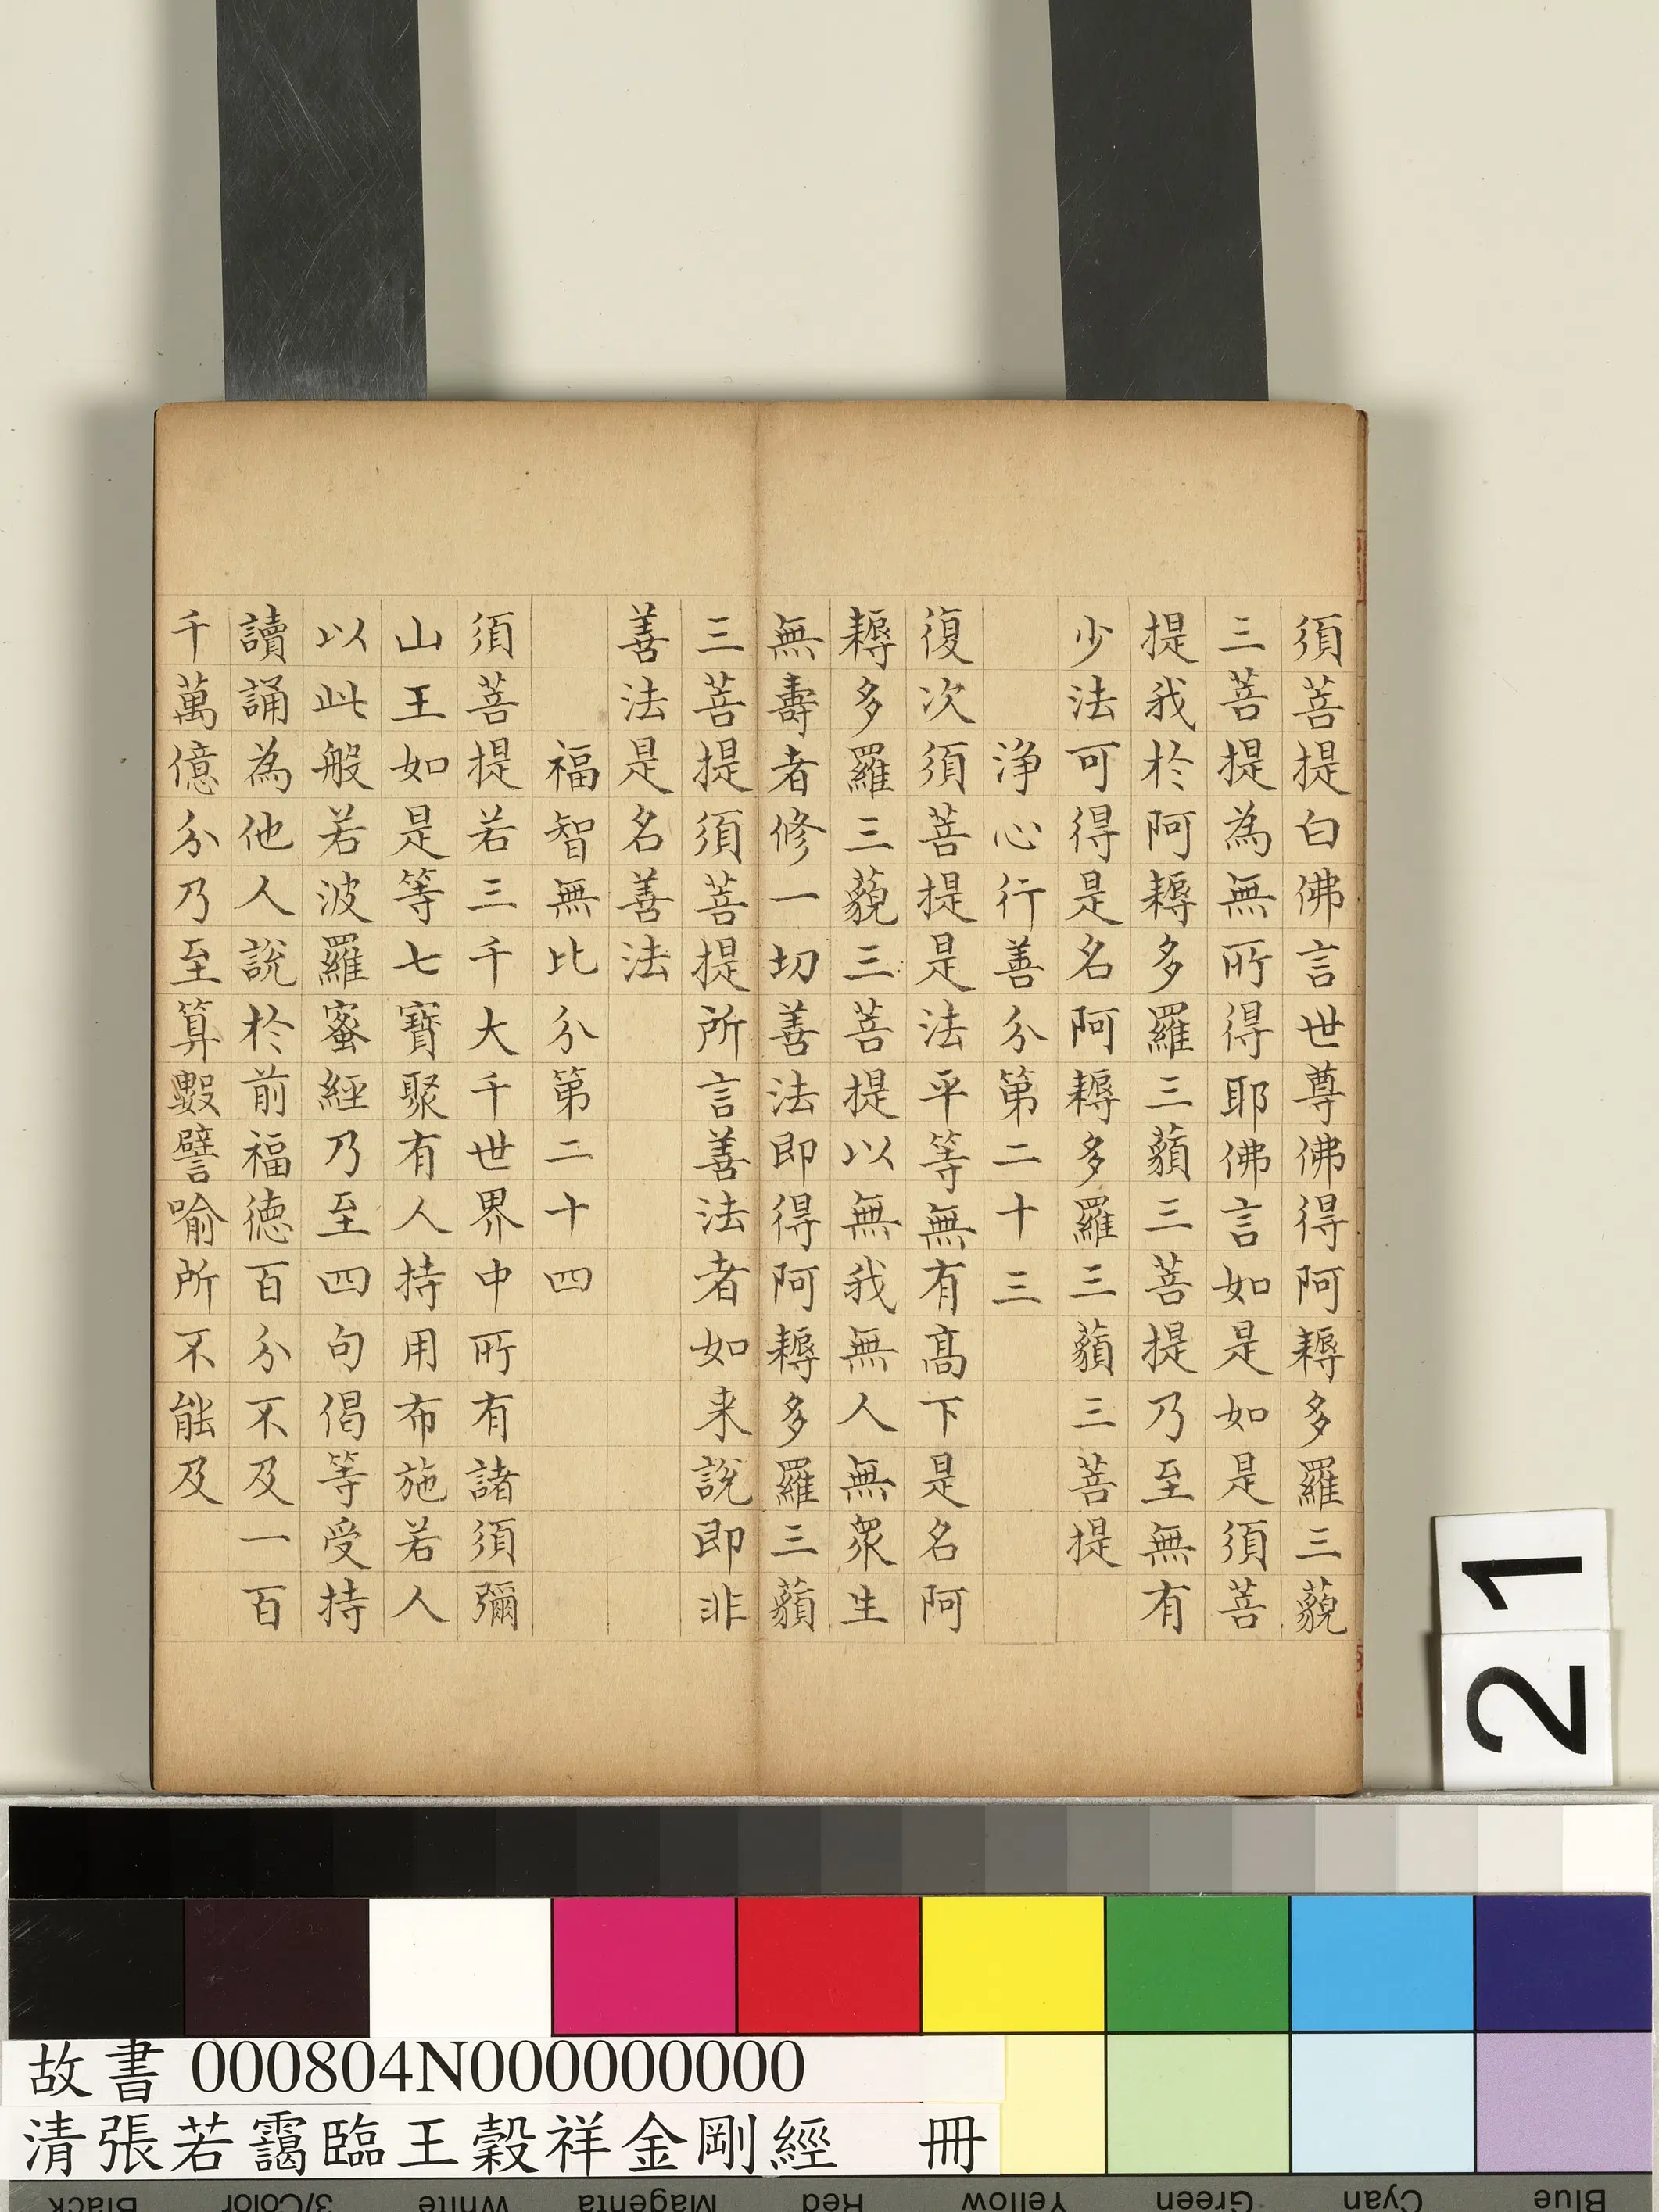 須菩提白佛言世尊佛得阿耨多羅三藐
三菩提為無所得耶佛言如是如是須菩
提我於阿耨多羅三藐三菩提乃至無有
少法可得是名阿耨多羅三藐三菩提
淨心行善分第二十三
復次須菩提是法平等無有高下是名阿
耨多羅三藐三菩提以無我無人無眾生
無壽者修一切善法即得阿耨多羅三藐
三菩提須菩提所言善法者如来說即非
善法是名善法
福智無比分第二十四
須菩提若三千大千世界中所有諸須彌
山王如是等七寶聚有人持用布施若人
以此般若波羅蜜經乃至四句偈等受持
讀誦為他人說於前福德百分不及一百
千萬億分乃至算數譬喻所不能及
21
故書 000804N000000000
清張若靄臨王穀祥金剛經 冊
Black
3/Color
White
Magenta
Red
Yellow
Green
Cyan
Blue